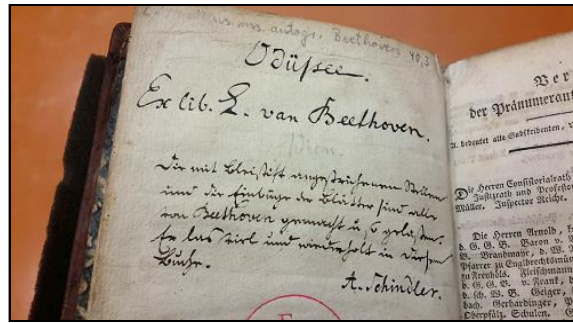 mus. ms. autogr. Beethoven 40,3
Odüßee.
Ex lib. L. van Beethoven.
Wien.
Die mit Bleistift angestrichenen Stellen
und die Einbüge der Blätter sind alle
von Beethoven gemacht u. so gelassen.
Er las viel und wiederholt in diesem
Buche.
A. Schindler.
Ver
der Pränumerant
bedeutet alle Subskribenten, v
Die Herren Consistorialrath
Justizrath und Professor
Müller. Inspector Reiche.
Die Herren Arnold,
d. G. G. B. Baron v.
B. Brandmayr, d. W.
Pfarrer zu Englbrechtsmün
Fleischmann
d. G. G. B. v. Frank, d
d. sch. W. B. Geiger,
bach. Gerhardinger, P
Oberpfälz. Schulen. G